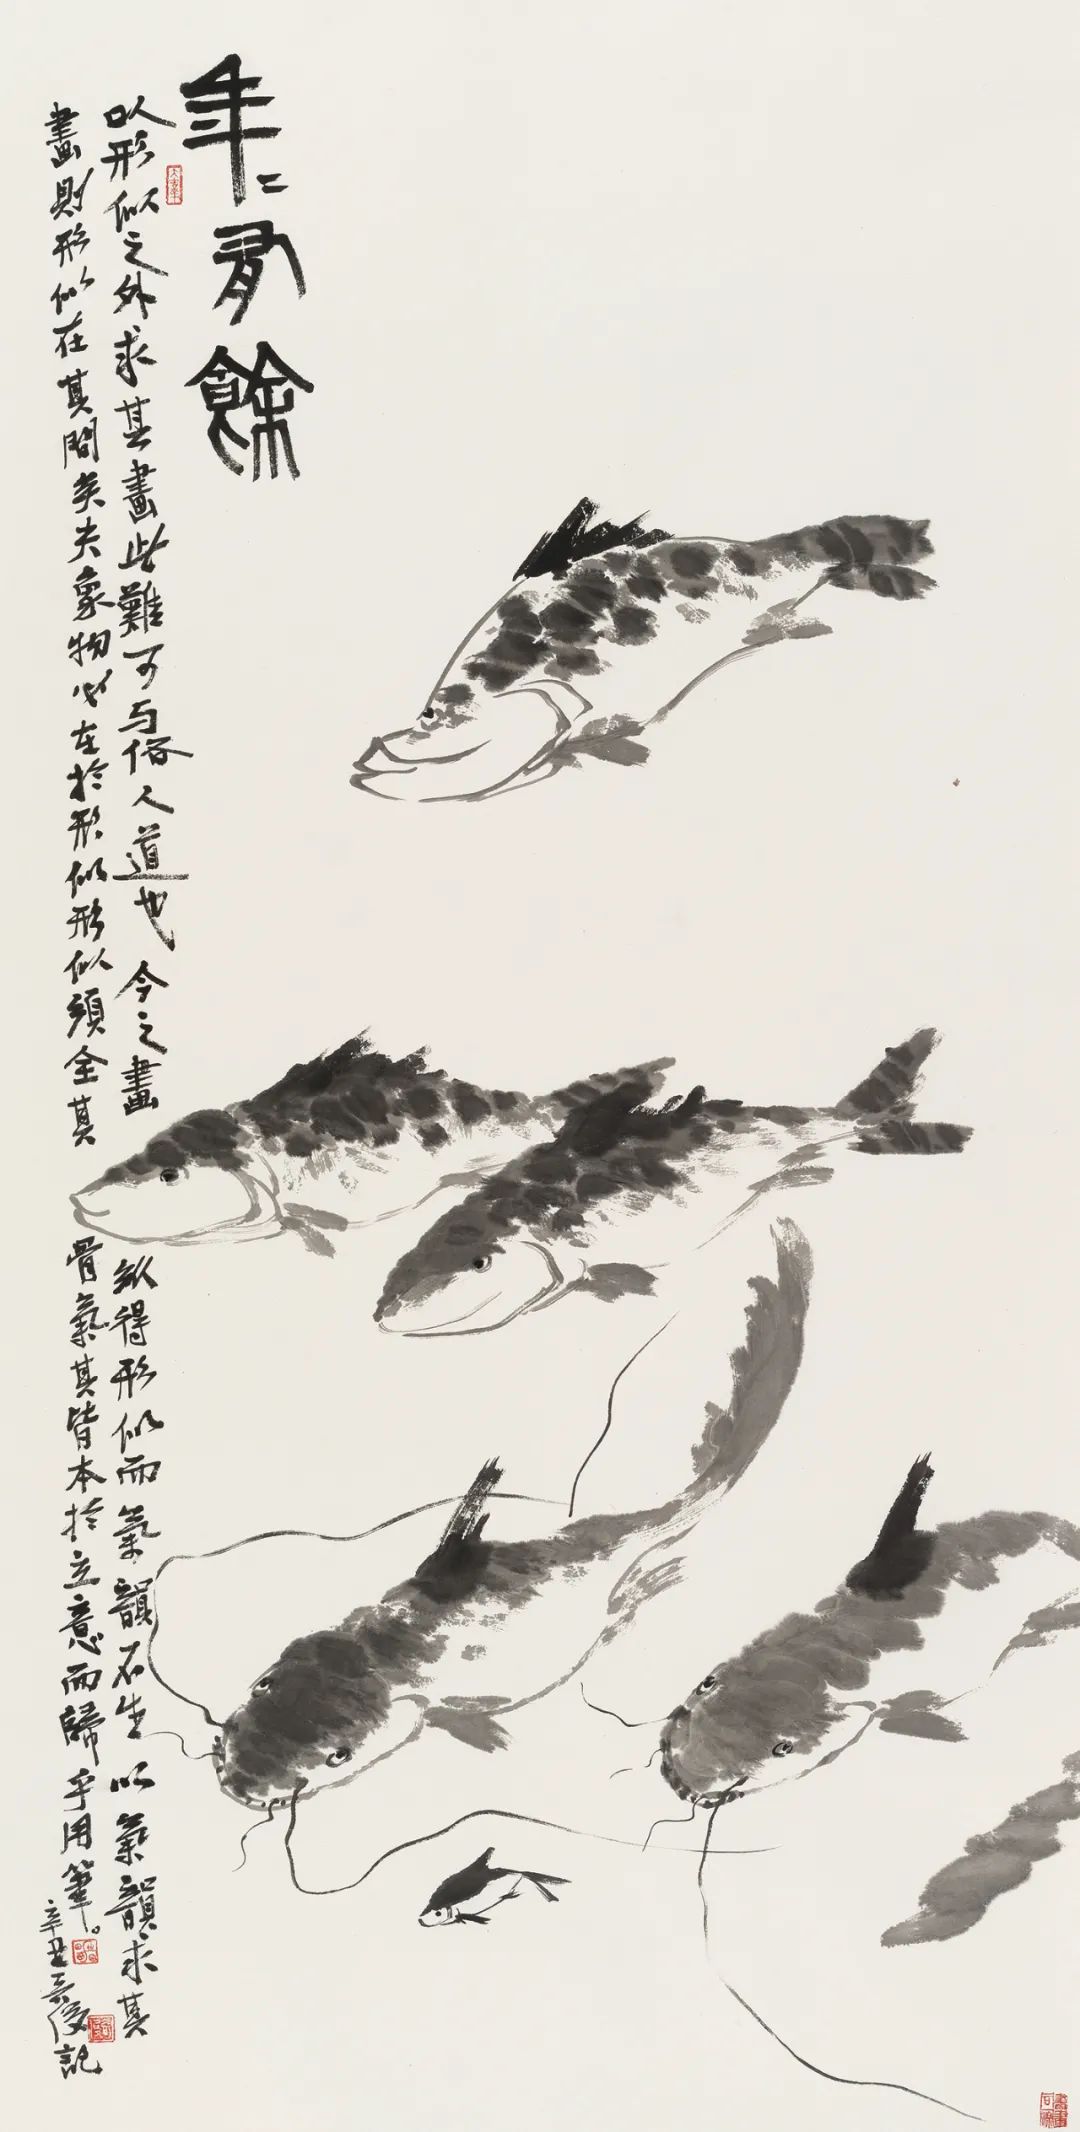 年二有餘
以形似之外求其畫此難可与俗人道也今之畫纵得形似而氣韻不生以氣韻求其
畫則形似在其間矣夫象物必在於形似形似須全其骨氣其皆本於立意而歸乎用筆。
辛丑 記